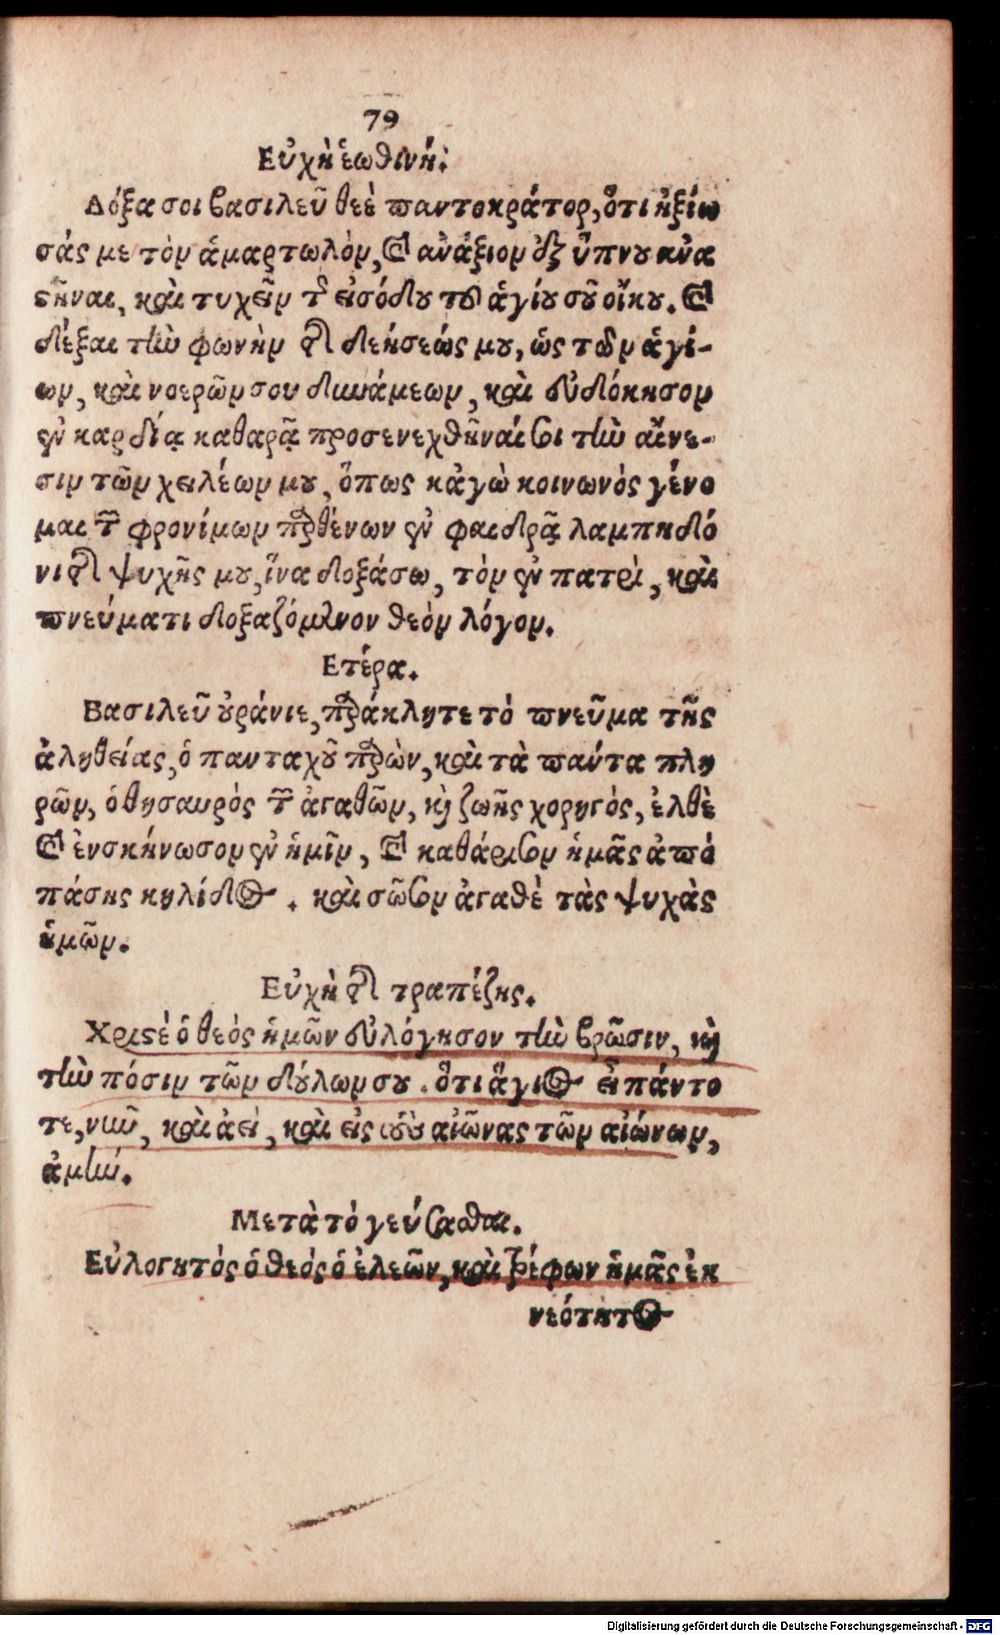 79
Εὐχὴ ἑωθινή.
Δόξα σοι βασιλεῦ θεὲ παντοκράτορ, ὅτι ἠξίω
σάς με τὸν ἁμαρτωλὸν, καὶ ἀνάξιον ἐξ ὕπνου ἀνα
στῆναι, καὶ τυχεῖν τῆς εἰσόδου τοῦ ἁγίου σοῦ οἴκου. καὶ
δέξαι τὴν φωνὴν τῆς δεήσεώς μου, ὡς τῶν ἁγί-
ων, καὶ νοερῶν σου δυνάμεων, καὶ εὐδόκησον
ἐν καρδίᾳ καθαρᾷ προσενεχθῆναί σοι τὴν αἴνε-
σιν τῶν χειλέων μου, ὅπως κἀγὼ κοινωνὸς γένο
μαι τῶν φρονίμων παρθένων ἐν φαιδρᾷ λαμπηδό
νι τῆς ψυχῆς μου, ἵνα δοξάσω, τὸν ἐν πατρὶ, καὶ
πνεύματι δοξαζόμενον θεὸν λόγον.
Ετέρα.
Βασιλεῦ οὐράνιε, παράκλητε τὸ πνεῦμα τῆς
ἀληθείας, ὁ πανταχοῦ παρὼν, καὶ τὰ πάντα πλη
ρῶν, ὁ θησαυρὸς τῶν ἀγαθῶν, καὶ ζωῆς χορηγὸς, ἐλθὲ
καὶ ἐνσκήνωσον ἐν ἡμῖν, καὶ καθάρισον ἡμᾶς ἀπὸ
πάσης κηλίδος. καὶ σῶσον ἀγαθὲ τὰς ψυχὰς
ἡμῶν.
Εὐχὴ τῆς τραπέζης.
Χριστὲ ὁ θεὸς ἡμῶν εὐλόγησον τὴν βρῶσιν, καὶ
τὴν πόσιν τῶν δούλων σου. ὅτι ἅγιος εἶ πάντο
τε, νῦν, καὶ ἀεὶ, καὶ εἰς τοὺς αἰῶνας τῶν αἰώνων,
ἀμήν.
Μετὰ τὸ γεύσασθαι.
Εὐλογητὸς ὁ θεὸς ὁ ἐλεῶν, καὶ τρέφων ἡμᾶς ἐκ
νεότητος
Digitalisierung gefördert durch die Deutsche Forschungsgemeinschaft - DFG